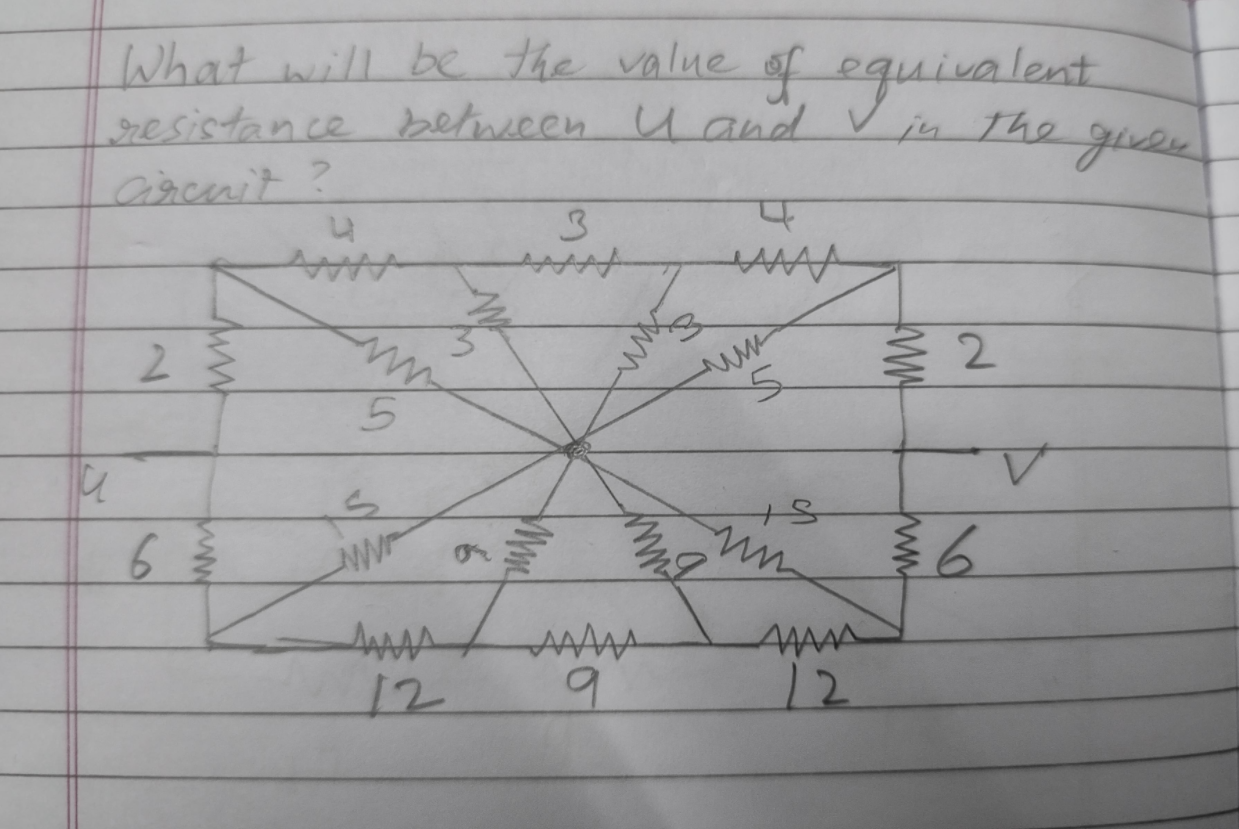 What will be the value of equivalent
resistance between U and V in the given
circuit?
4 3 4
2 3 3 2
5 5
U V
5 15
6 9 9 6
12 9 12